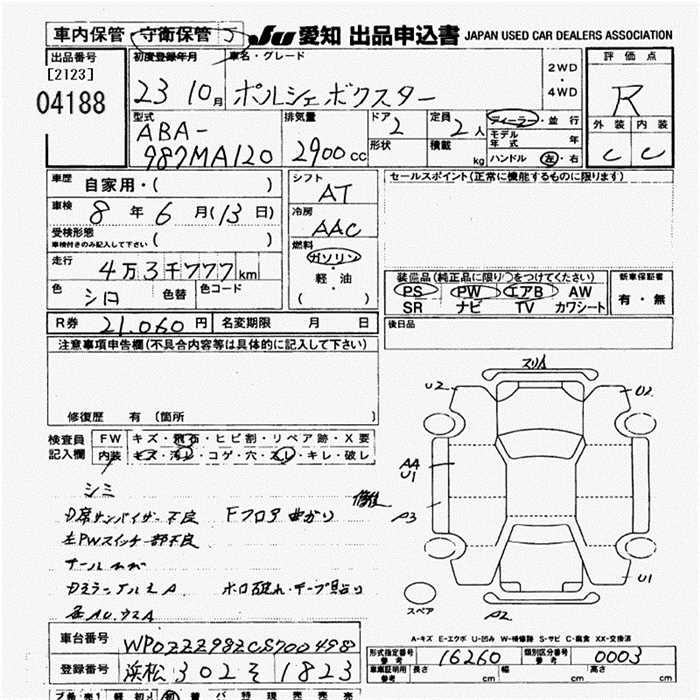 車内保管・守衛保管 J
JU 愛知 出品申込書 JAPAN USED CAR DEALERS ASSOCIATION
出品番号
[2123]
04188
初度登録年月 車名・グレード
23 10月 ポルシェボクスター
2WD
・
4WD
評価点
R
外装 内装
C C
型式
ABA-
987MA120
排気量
2900cc
ドア
2
定員
2人
形状
積載
kg
ディーラー・並行
モデル年式 年
ハンドル 左・右
車歴
自家用・( )
車検
8年6月(13日)
受検形態
車検付きのみ記入して下さい ( )
走行
4万3千777km
色
シロ
色替
色コード
シフト
AT
冷房
AAC
燃料
ガソリン
・
軽・油
( )
セールスポイント(正常に機能するものに限ります)
装備品(純正品に限り○をつけてください)
PS PW エアB AW
SR ナビ TV カワシート
新車保証書
有・無
R券 21,060円
名変期限 月 日
後日品
注意事項申告欄(不具合内容等は具体的に記入して下さい)
修復歴 有 (箇所 )
検査員
記入欄
FW キズ・飛石・ヒビ割・リペア跡・X要
内装 キズ・汚レ・コゲ・穴・スレ・キレ・破レ
シミ
サンバイザー不良 Fフロア曲がり
左PWスイッチ一部不良
スリA
U2 U2
AA
U1
A3
U1
スペア
A2
A-キズ E-エクボ U-凹み W-補修跡 S-サビ C-腐食 XX-交換済
車台番号
WP0ZZZ98ZCS700498
登録番号
浜松 302 そ 1823
形式指定番号
参考
16260
類別区分番号
参考
0003
車車証明用
参考
長さ 幅 高さ